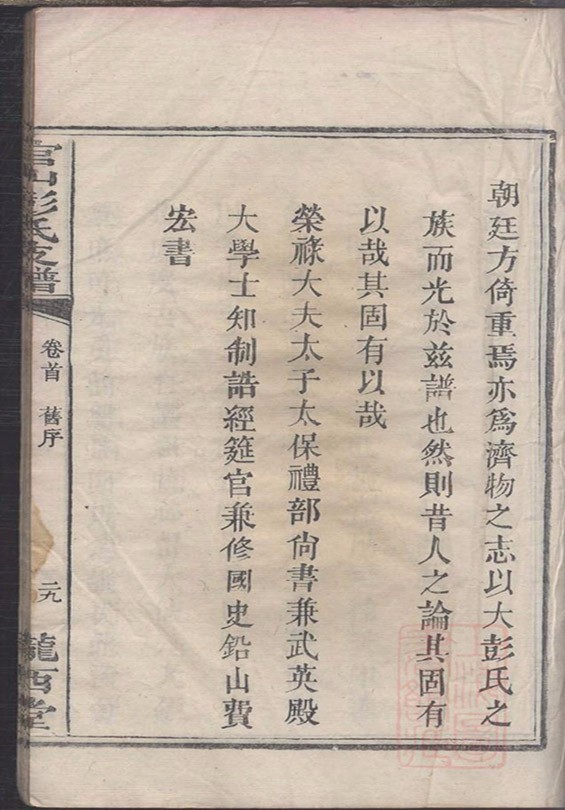 朝廷方倚重焉亦爲濟物之志以大彭氏之
族而光於兹譜也然則昔人之論其固有
以哉其固有以哉
榮祿大夫太子太保禮部尙書兼武英殿
大學士知制誥經筵官兼修國史鉛山費
宏書
官山彭氏支譜
卷首 舊序
二九
隴西堂